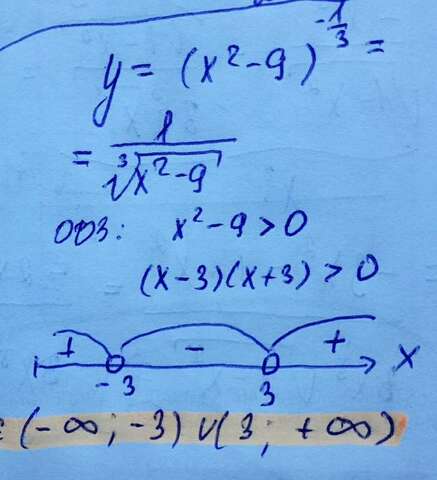 y = (x² - 9)^{-1/3} =
= 1/∛(x² - 9)
ОДЗ: x² - 9 > 0
(x - 3)(x + 3) > 0
+ - + x
-3 3
(-∞; -3) ∪ (3; +∞)